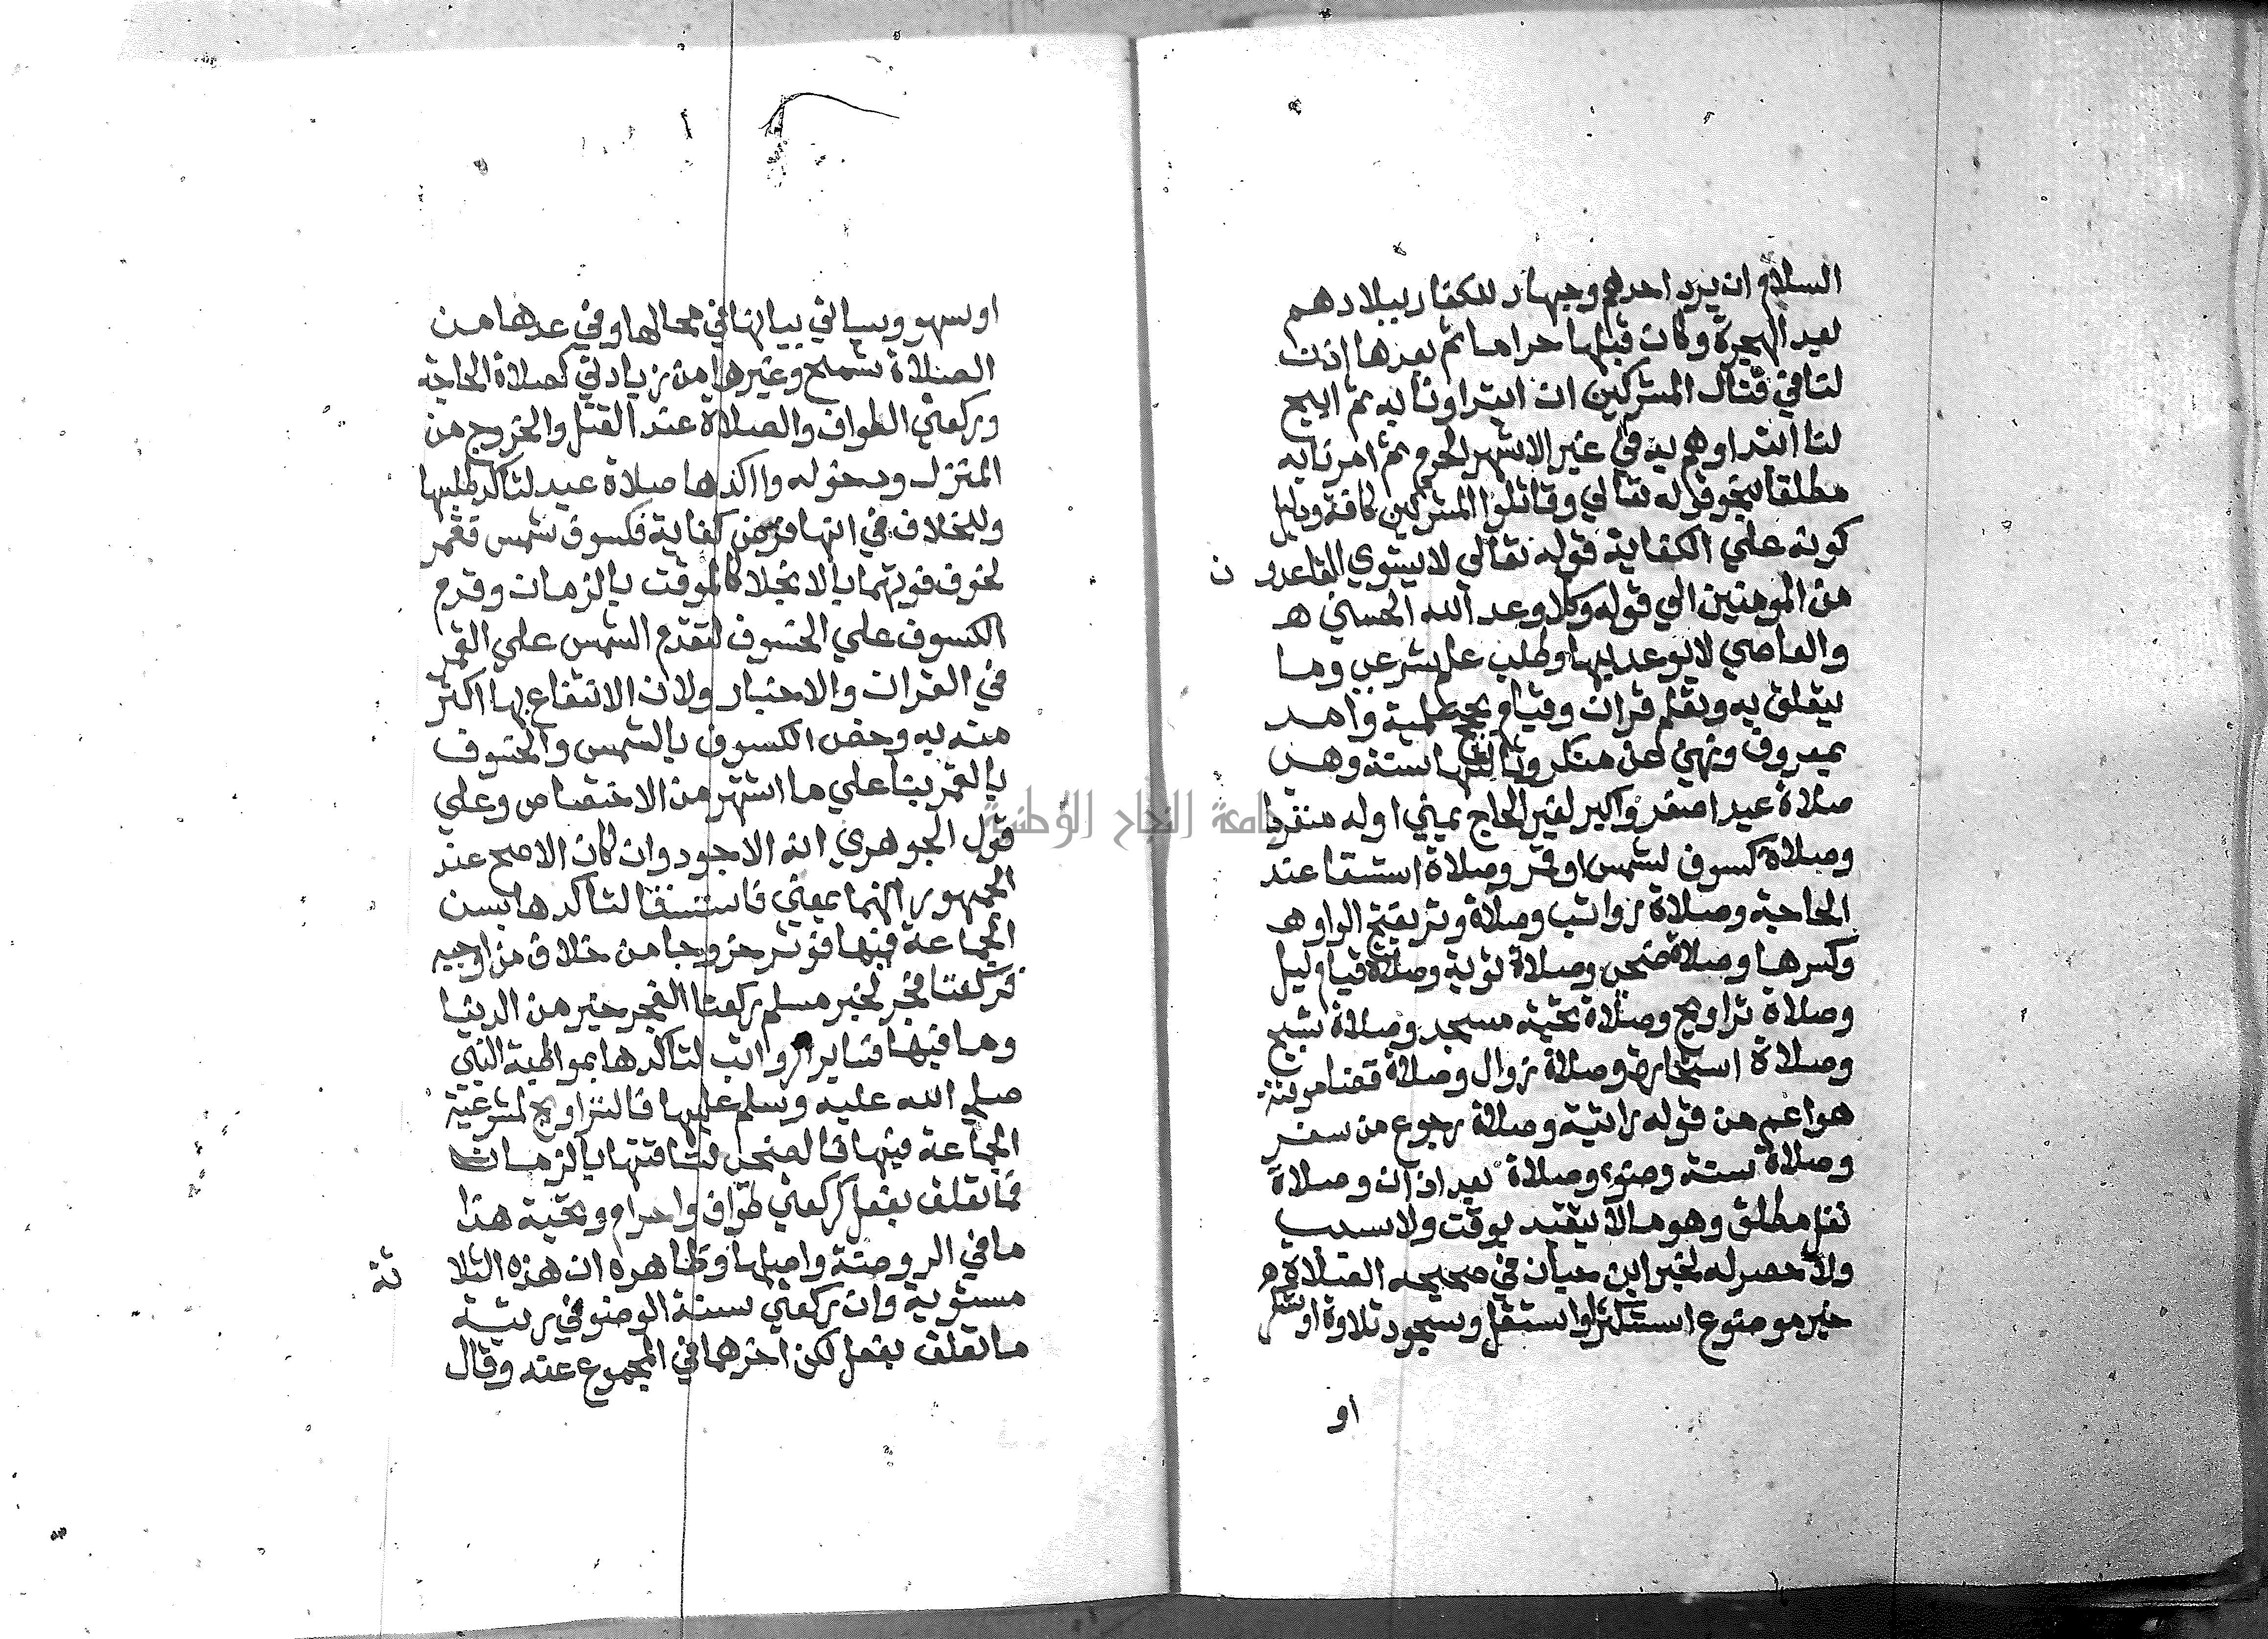 السلام ان يرد احدهم وجهاد للكفار ببلادهم
بعد الهجرة وكان قبلها حراما ثم بعدها اذن
لنا في قتال المشركين ان ابتداونا به ثم ابيح
لنا ابتداوهم به في غير الاشهر الحرم ثم امرنا به
مطلقا بنحو قوله تعالي وقاتلوا المشركين كافة ودليل
كونه علي الكفاية قوله تعالي لا يستوي القاعدون
من المومنين الي قوله وكلا وعد الله الحسني هـ
والعاصي لا يوعد بها وطلب علم شرعي وما
يتعلق به وتعلم قران وقيام بحجج علمية وامر
بمعروف ونهي عن منكر وثالثها سنة وهي
صلاة عيد اصغر واكبر لغير الحاج بمني اوله منفردا
وصلاة كسوف لشمس او قمر وصلاة استسقا عند
الحاجة وصلاة رواتب وصلاة وتر بفتح الواو هـ
وكسرها وصلاة ضحي وصلاة توبة وصلاة قيام ليل
وصلاة تراويح وصلاة تحية مسجد وصلاة تسبيح
وصلاة استخارة وصلاة زوال وصلاة قضا مرتبة
هو اعم من قوله راتبة وصلاة رجوع من سفر
وصلاة سنة وضوء وصلاة بعد اذان وصلاة
نفل مطلق وهو مالا يتقيد بوقت ولا سبب
ولا حصر له لخبر ابن حبان في صحيحه الصلاة
خير موضوع استكثر او استقل وسجود تلاوة او شكر
او
جامعة النجاح الوطنية
او سهو وسياتي بيانها في محالها وفي عدها من
الصلاة تسمح وغيرها من زيادتي كصلاة الحاجة
وركعتي الطواف والصلاة عند القتل والخروج من
المنزل ودخوله واكدها صلاة عيد لتاكد طلبها
وللخلاف في انها فرض كفاية فكسوف شمس فقمر
لخوف فوتهما بالانجلا كالموقت بالزمان وقدم
الكسوف علي الخسوف لتقدم الشمس علي القمر
في القران والاخبار ولان الانتفاع بها اكثر
منه به وخص الكسوف بالشمس والخسوف
بالقمر بنا علي ما اشتهر من الاختصاص وعلي
قول الجوهري انه الاجود وان كان الاصح عند
الجمهور انهما بمعني فاستسقا لتاكدها بسن
الجماعة فيها فوتر خروجا من خلاف من اوجبه
فركعتا فجر لخبر مسلم ركعتا الفجر خير من الدنيا
وما فيها فساير الرواتب لتاكدها بمواظبة النبي
صلي الله عليه وسلم عليها فالتراويح لمشرعية
الجماعة فيها فالضحي لشافتها بالزمان
فما تعلق بفعل كركعتي طواف واحرام وتحية هذا
ما في الروضة واصلها وظاهره ان هذه الثلاثة
مستوية وان ركعتي سنة الوضو في رتبة
ما تعلق بفعل لكن اخرهما في المجموع عنه وقال